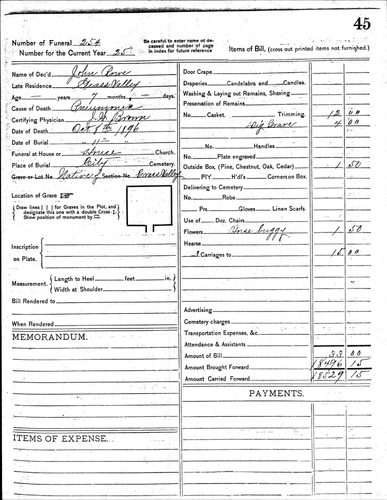 45
Number of Funeral 254
Number for the Current Year 25
Be careful to enter name of deceased and number of page in index for future reference
Items of Bill, (cross out printed items not furnished.)
Name of Dec'd John Rowe
Late Residence Grass Valley
Age — years 7 months, — days.
Cause of Death Pneumonia
Certifying Physician Brown
Date of Death Oct 1896
Date of Burial " 11 "
Funeral at House or House Church.
Place of Burial City Cemetery.
Grave or Lot No. Native of Section No. Grass Valley
Location of Grave
Draw lines [ ] for Graves in the Plot, and designate this one with a double Cross. Show position of monument by
Inscription on Plate.
Measurement. Length to Heel feet in.
Width at Shoulder
Bill Rendered to
When Rendered
MEMORANDUM.
ITEMS OF EXPENSE.
Door Crape
Draperies. Candelabra Candles.
Washing & Laying out Remains, Shaving
Preservation of Remains
No. Casket. Trimming. 12 00
Dig Grave 4 00
No. Handles
Plate engraved
Outside Box (Pine, Chestnut, Oak, Cedar) 1 50
P'l'y H'd'ls Corners on Box.
Delivering to Cemetery
No. Robe
Prs. Gloves Linen Scarfs.
Use of Doz. Chairs
Flowers buggy 1 50
Hearse
Carriages to 15 00
Advertising
Cemetery charges
Transportation Expenses, &c.
Attendance & Assistants
Amount of Bill 33 00
Amount Brought Forward 18496 15
Amount Carried Forward 18529 15
PAYMENTS.